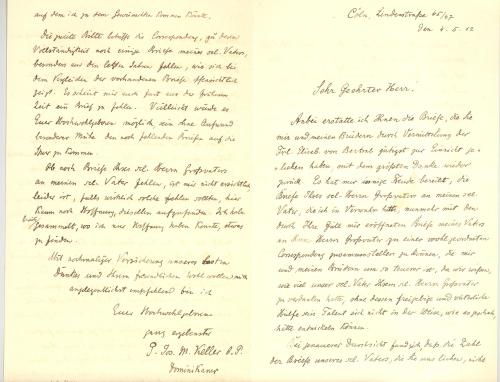 Cöln, Lindenstraße 45/47
den 4. 5. 12
Sehr Geehrter Herr!
Anbei erstatte ich Ihnen die Briefe, die Sie
mir und meinen Brüdern durch Vermittelung der
Frl. von gütigst zur Einsicht ge-
liehen haben, mit dem größten Danke wieder
zurück. Es hat mir innige Freude bereitet, die
Briefe Ihres sel. Herrn Großvaters an meinen sel.
Vater, die ich in Verwahr hatte, nunmehr mit den
durch Ihre Güte mir eröffneten Briefe meines Vaters
an Ihren Herrn Großvater zu einer wohlgeordneten
Correspondenz zusammenstellen zu können, die mir
und meinen Brüdern um so teuerer ist, da wir wissen,
wie viel unser sel. Vater Ihrem sel. Herrn Großvater
zu verdanken hatte, ohne dessen freigebige und
Hülfe sein Talent sich nicht in der Weise, wie es geschah,
hätte entwickeln können.
Bei genauerer Durchsicht fand ich, daß die Zahl
der Briefe unseres sel. Vaters, die Sie uns liehen, nicht
auf dem ich zu dem kommen könnte.
Die zweite Bitte betrifft die Correspondenz, zu deren
Vollständigkeit noch einige Briefe meines sel. Vaters,
besonders aus den letzten Jahren fehlen, wie sich bei
dem Vergleichen der vorhandenen Briefe offensichtlich
zeigt. Es scheint mir auch fast aus der früheren
Zeit ein Brief zu fehlen. Vielleicht würde es
Euer Hochwohlgeboren möglich sein ohne Aufwand
besonderer Mühe den noch fehlenden Briefen auf die
Spur zu kommen.
Ob noch Briefe Ihres sel. Herrn Großvaters
an meinen sel. Vater fehlen, ist mir nicht ersichtlich,
leider ist, falls wirklich solche fehlen sollten, hier
kaum noch Hoffnung, dieselben aufzufinden. Ich habe
gesammelt, wo ich nur Hoffnung haben konnte, etwas
zu finden.
Mit nochmaliger Versicherung unseres besten
Dankes und Ihrem freundlichen Wohlwollen mich
angelegentlichst empfehlend bin ich
Euer Hochwohlgeboren
ganz ergebenster
P. Jos. M. Keller O.P.
Dominikaner